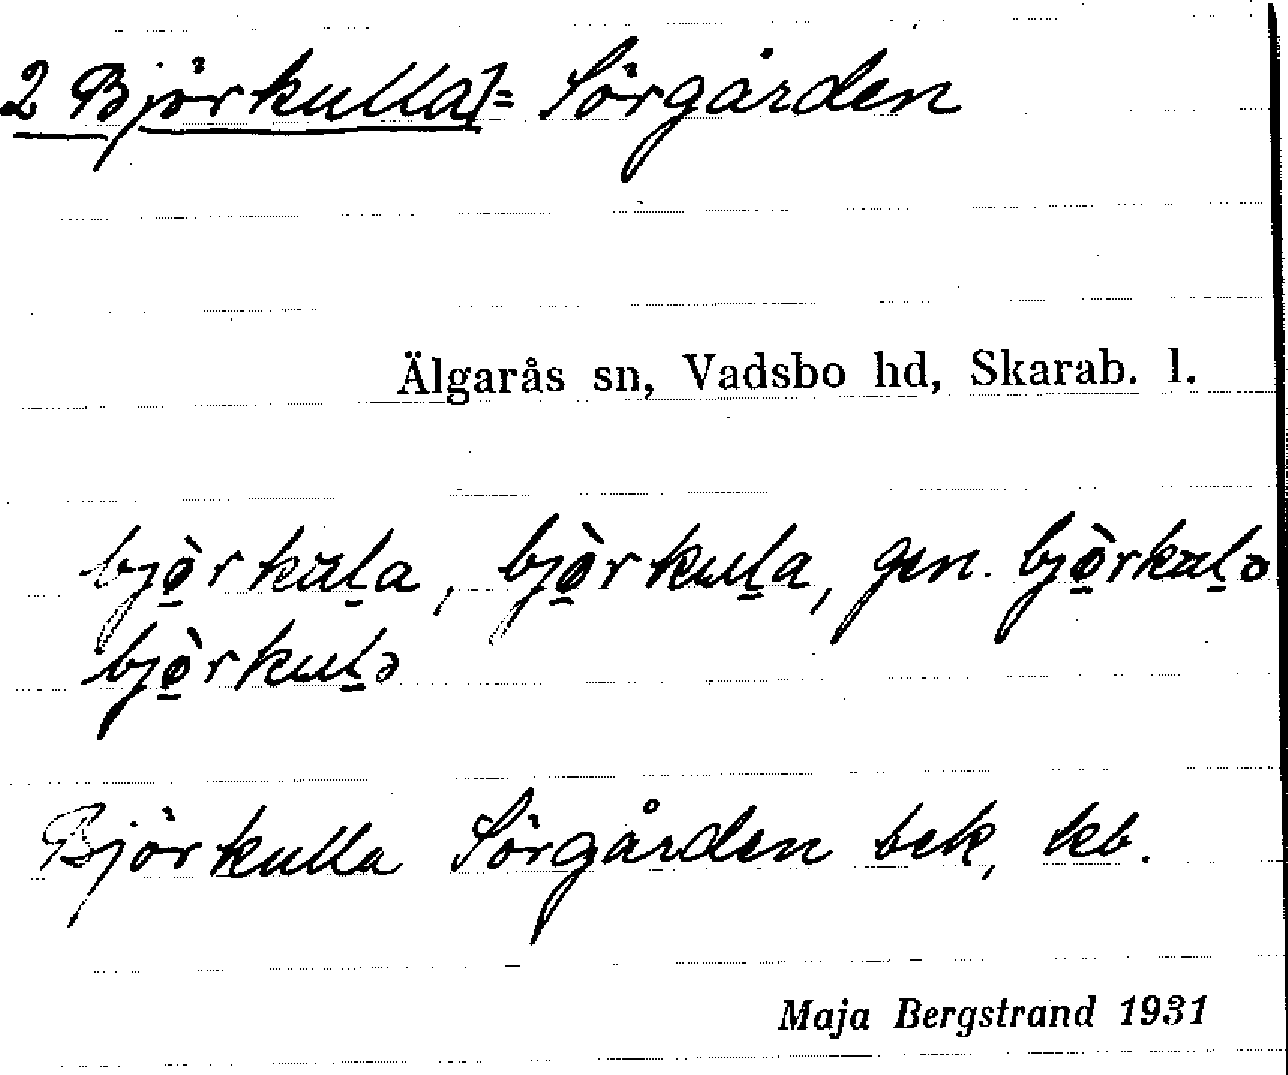 2 Björkulla]= Sörgården
Älgarås sn, Vadsbo hd, Skarab. l.
bjø̠̀rkuḻa, bjø̠̀rkuḻa, gen. bjø̠̀rkuḻə
bjø̠̀rkuḻə
Björkulla Sörgården bek, kb.
Maja Bergstrand 1931